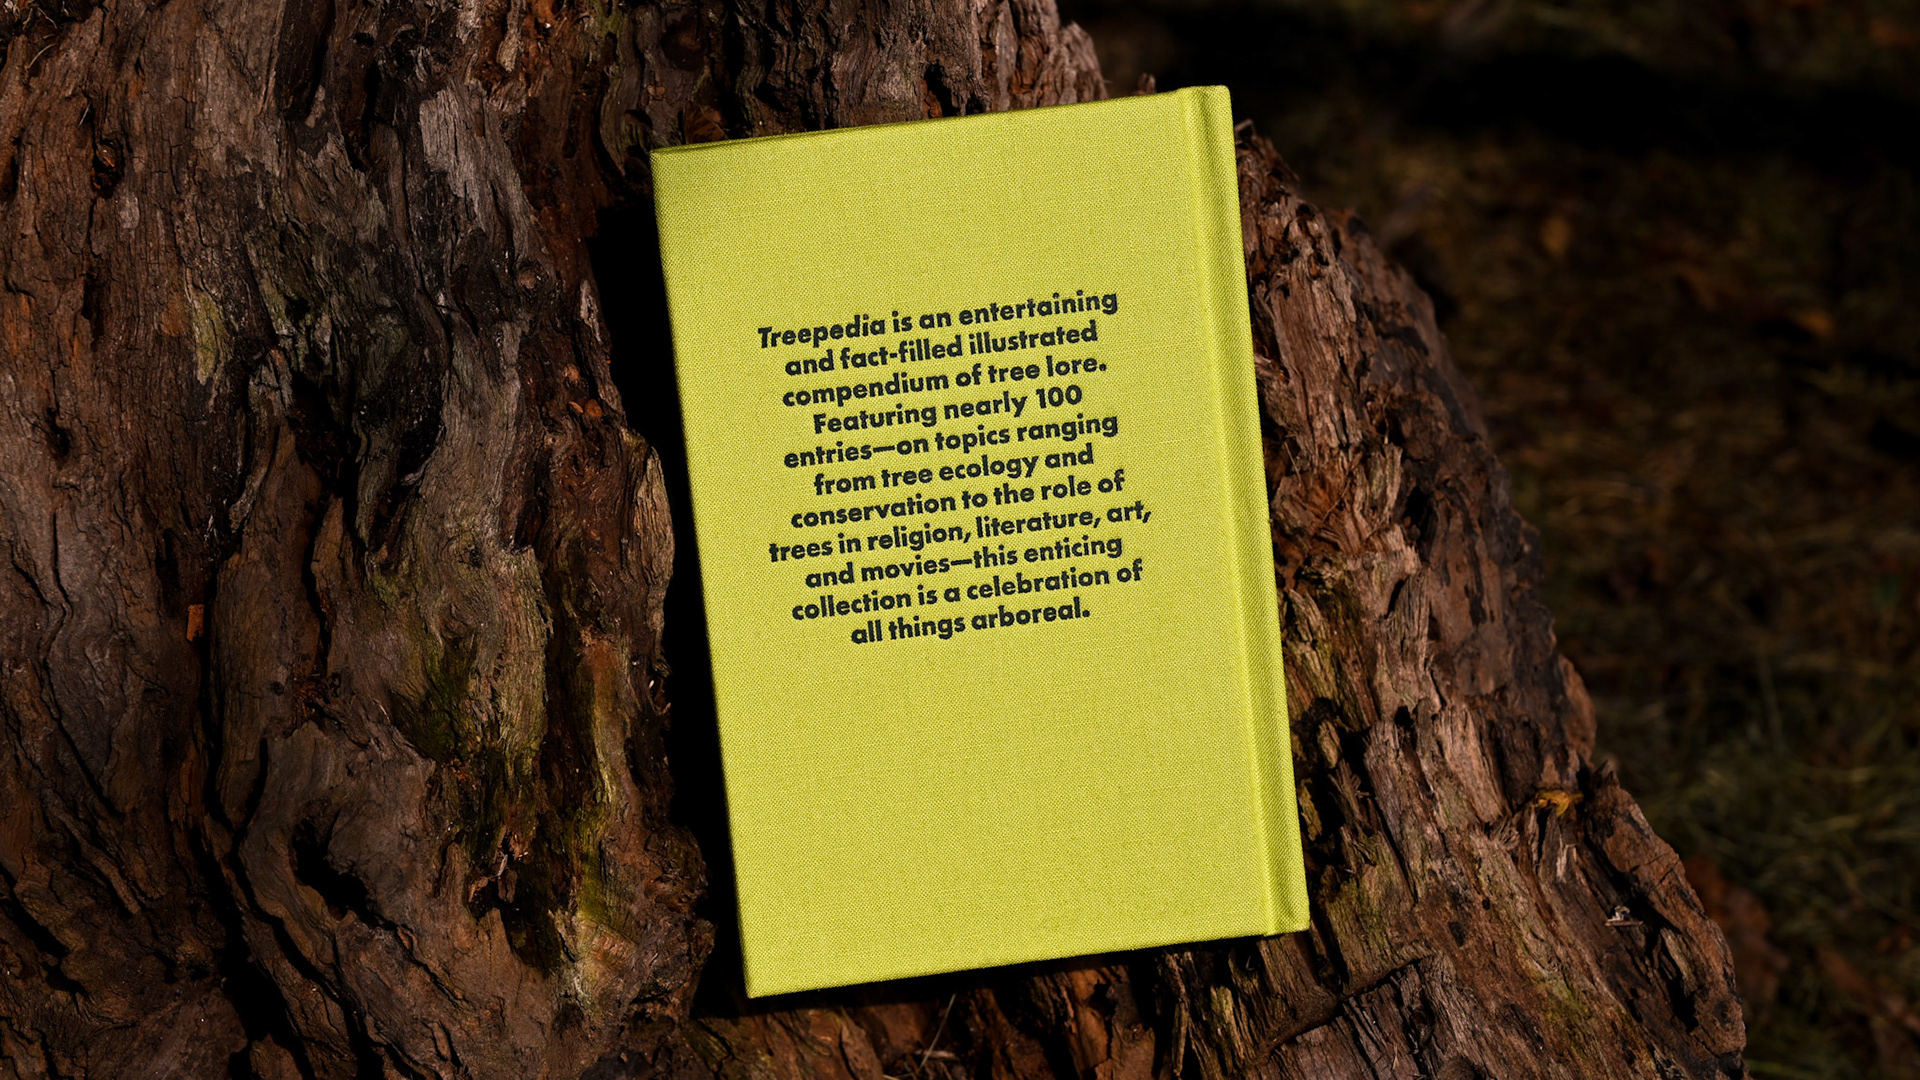 Treepedia is an entertaining
and fact-filled illustrated
compendium of tree lore.
Featuring nearly 100
entries—on topics ranging
from tree ecology and
conservation to the role of
trees in religion, literature, art,
and movies—this enticing
collection is a celebration of
all things arboreal.